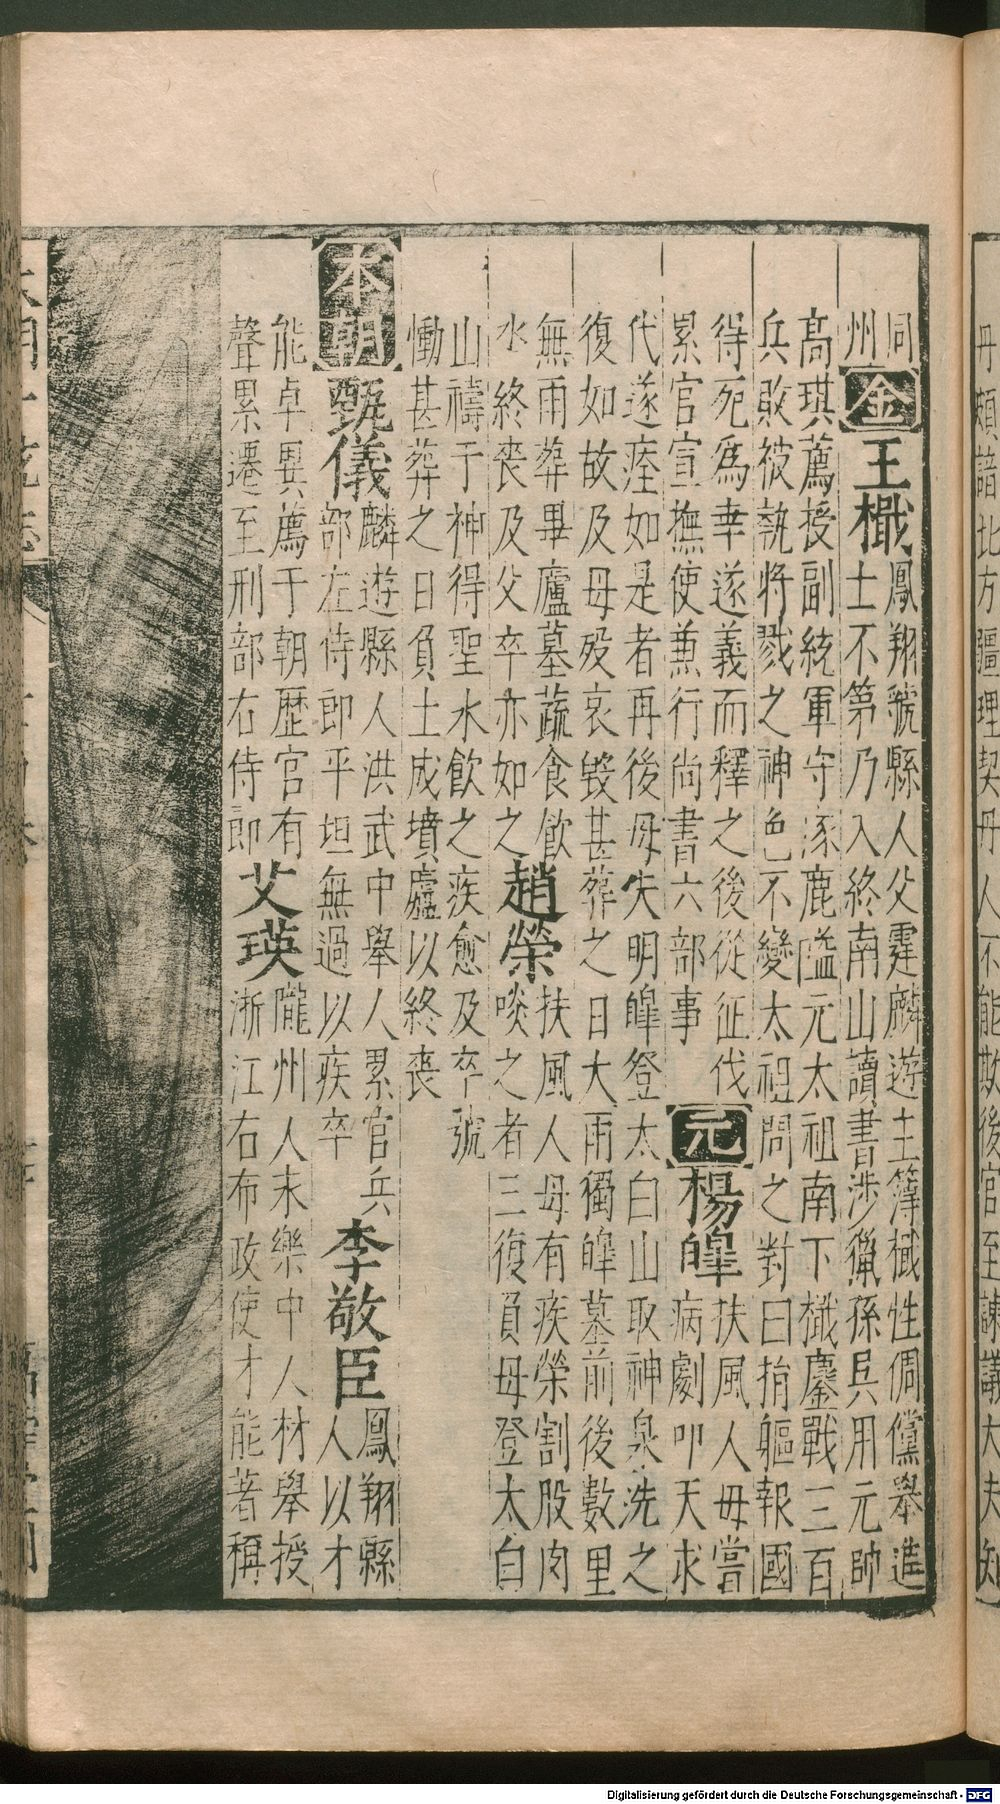 丹頗諳北方疆理契丹人不能欺後官至諫議大夫知
同
州
金
王檝
鳳翔虢縣人父霆麟遊主簿檝性倜儻舉進
士不第乃入終南山讀書涉獵孫吳用元帥
高琪薦授副統軍守涿鹿隘元太祖南下檝鏖戰三百
兵敗被執將戮之神色不變太祖問之對曰捐軀報國
得死爲幸遂義而釋之後從征伐
累官宣撫使兼行尚書六部事
元
楊皥
扶風人母嘗
病劇叩天求
代遂痊如是者再後母失明皥登太白山取神泉洗之
復如故及母歿哀毀甚葬之日大雨獨皥墓前後數里
無雨葬畢廬墓蔬食飲
水終喪及父卒亦如之
趙榮
扶風人母有疾榮割股肉
啖之者三復負母登太白
山禱于神得聖水飲之疾愈及卒號
慟甚葬之日負土成墳廬以終喪
本朝
甄儀
麟遊縣人洪武中舉人累官兵
部左侍郎平坦無過以疾卒
李敬臣
鳳翔縣
人以才
能卓異薦于朝歷官有
聲累遷至刑部右侍郎
艾瑛
隴州人末樂中人材舉授
浙江右布政使才能著稱
Digitalisierung gefördert durch die Deutsche Forschungsgemeinschaft - DFG